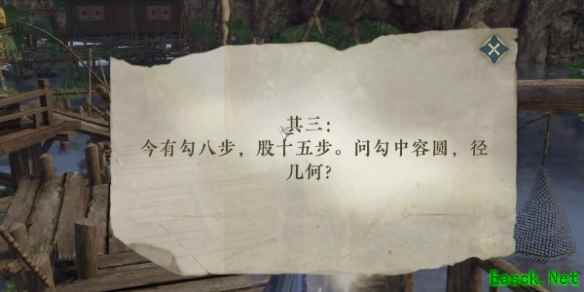 其三：
今有勾八步，股十五步。问勾中容圆，径
几何？
Eaeck.Net